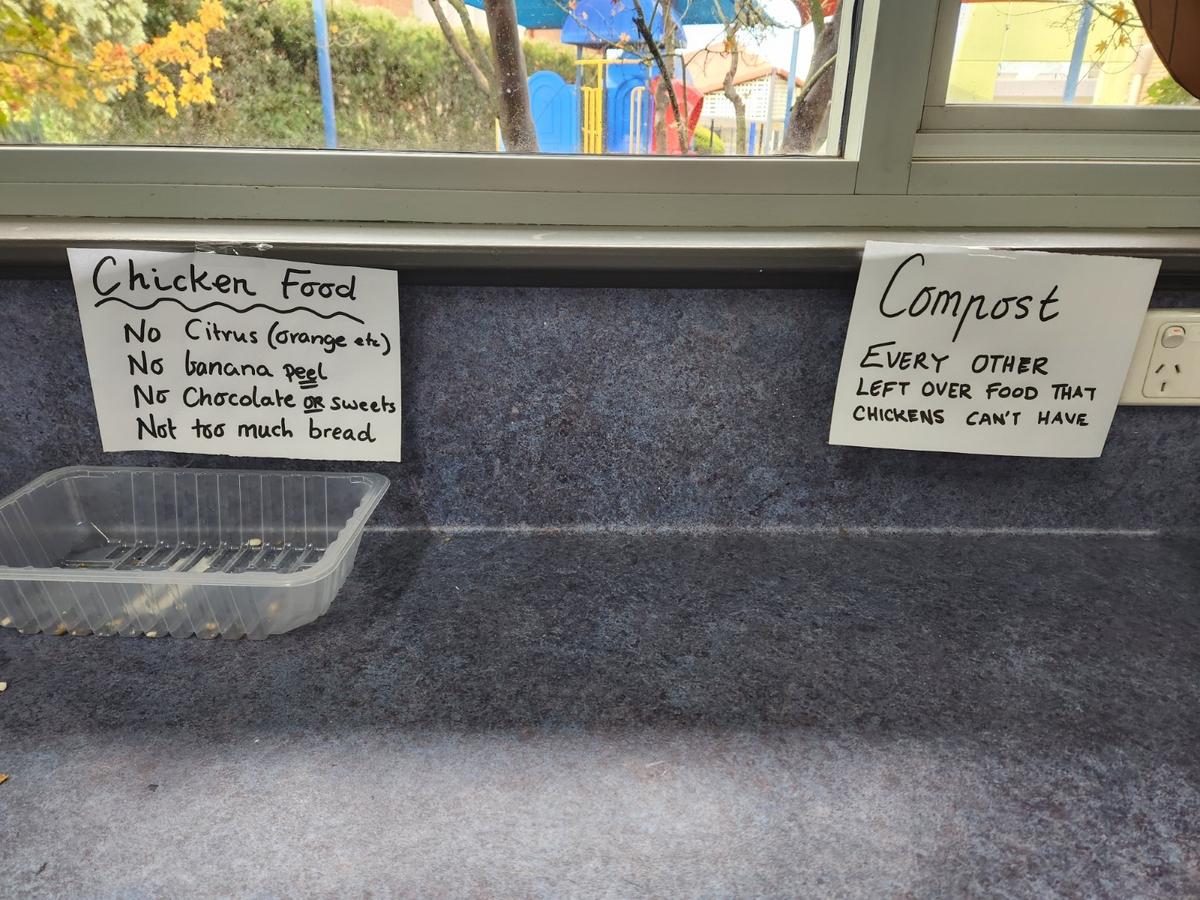 Chicken Food
No Citrus (orange etc)
No banana peel
No Chocolate OR sweets
Not too much bread
Compost
EVERY OTHER
LEFT OVER FOOD THAT
CHICKENS CAN'T HAVE